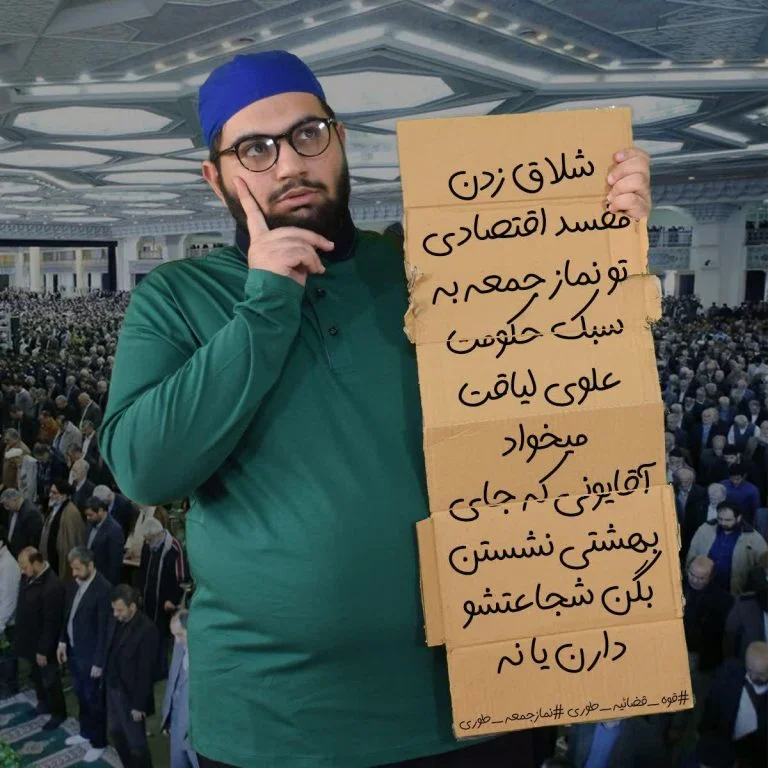 شلاق زدن
مفسد اقتصادی
تو نماز جمعه به
سبک حکومت
علوی لیاقت
میخواد
آقایونی که جای
بهشتی نشستن
بگن شجاعتشو
دارن یا نه
#قوه_قضائیه_طوری #نمازجمعه_طوری